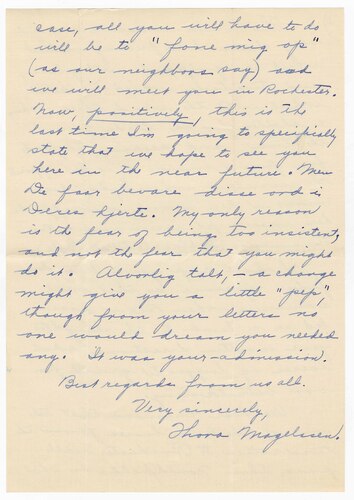 case, all you will have to do
will be to "fone mig op"
(as our neighbors say) and
we will meet you in Rochester.
Now, positively, this is the
last time I'm going to specifically
state that we hope to see you
here in the near future. Men
De faar bevare disse ord i
Deres hjerte. My only reason
is the fear of being too insistent,
and not the fear that you might
do it. Alvorlig talt, — a change
might give you a little "pep",
though from your letters no
one would dream you needed
any. It was your admission.
Best regards from us all.
Very sincerely,
Thora Magelssen.